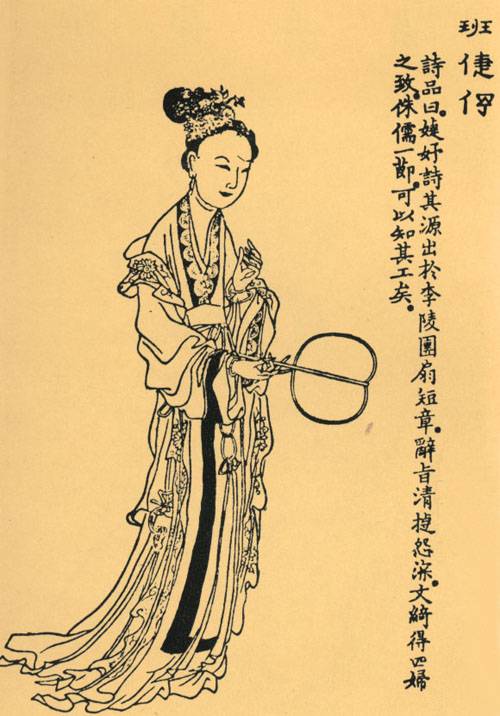 班倢伃
詩品曰。婕妤詩其源出於李陵團扇短章。辭旨清捷怨深。文綺得匹婦
之致。侏儒一節。可以知其工矣。